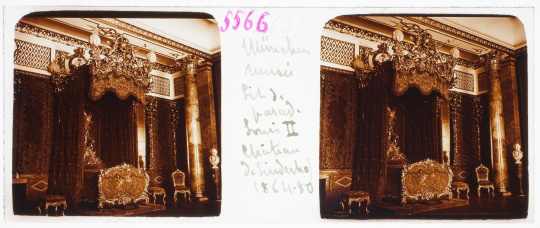 5566
München
musée
Lit de
parade
Louis II
Château
de Linderhof
1864-80